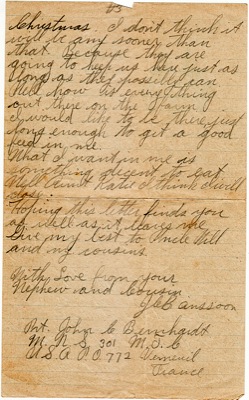 Christmas. I don't think it
will be any sooner than
that. Because they are
going to keep us here just as
long as they possible can
Well how is everything
out there on the Farm
I would like to be there just
long enough to get a good
feed in me.
What I want in me is
something decent to eat
Well Aunt Katie I think I will
close
Hoping this letter finds you
as well as it leaves me
Give my best to Uncle Will
and my cousins
With Love from your
Nephew and Cousin
Pvt. John C Bernhardt
M. R. S. 301 M. T. C
U.S.A P.O. 772 Verneuil
France